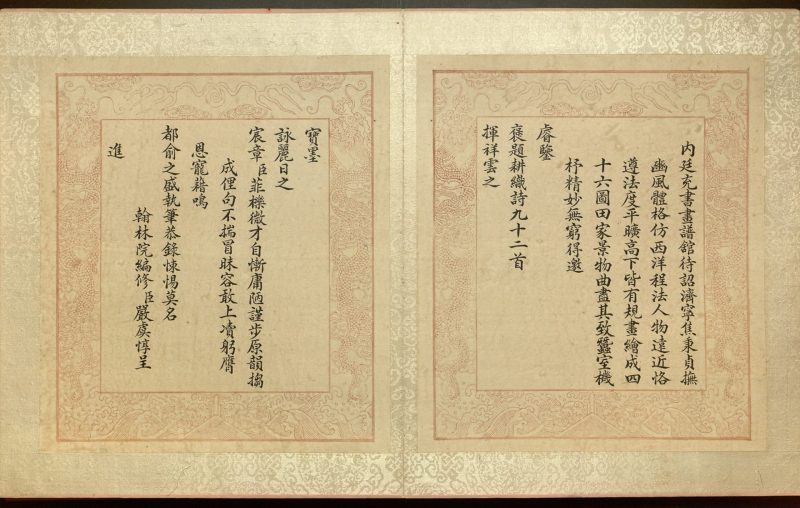 内廷充書畫譜舘待詔濟寧焦秉貞撫
豳風體格仿西洋程法人物遠近恪
遵法度平曠高下皆有規畫繪成四
十六圖田家景物曲盡其致蠶室機
杼精妙無窮得邀
睿鑒
褒題耕織詩九十二首
揮祥雲之
寶墨
詠麗日之
宸章臣菲櫟微才自慚庸陋謹步原韻搊
成俚句不揣冒昧容敢上凟躬膺
恩寵藉鳴
都俞之盛執筆恭錄悚惕莫名
進
翰林院編修臣嚴虞惇呈